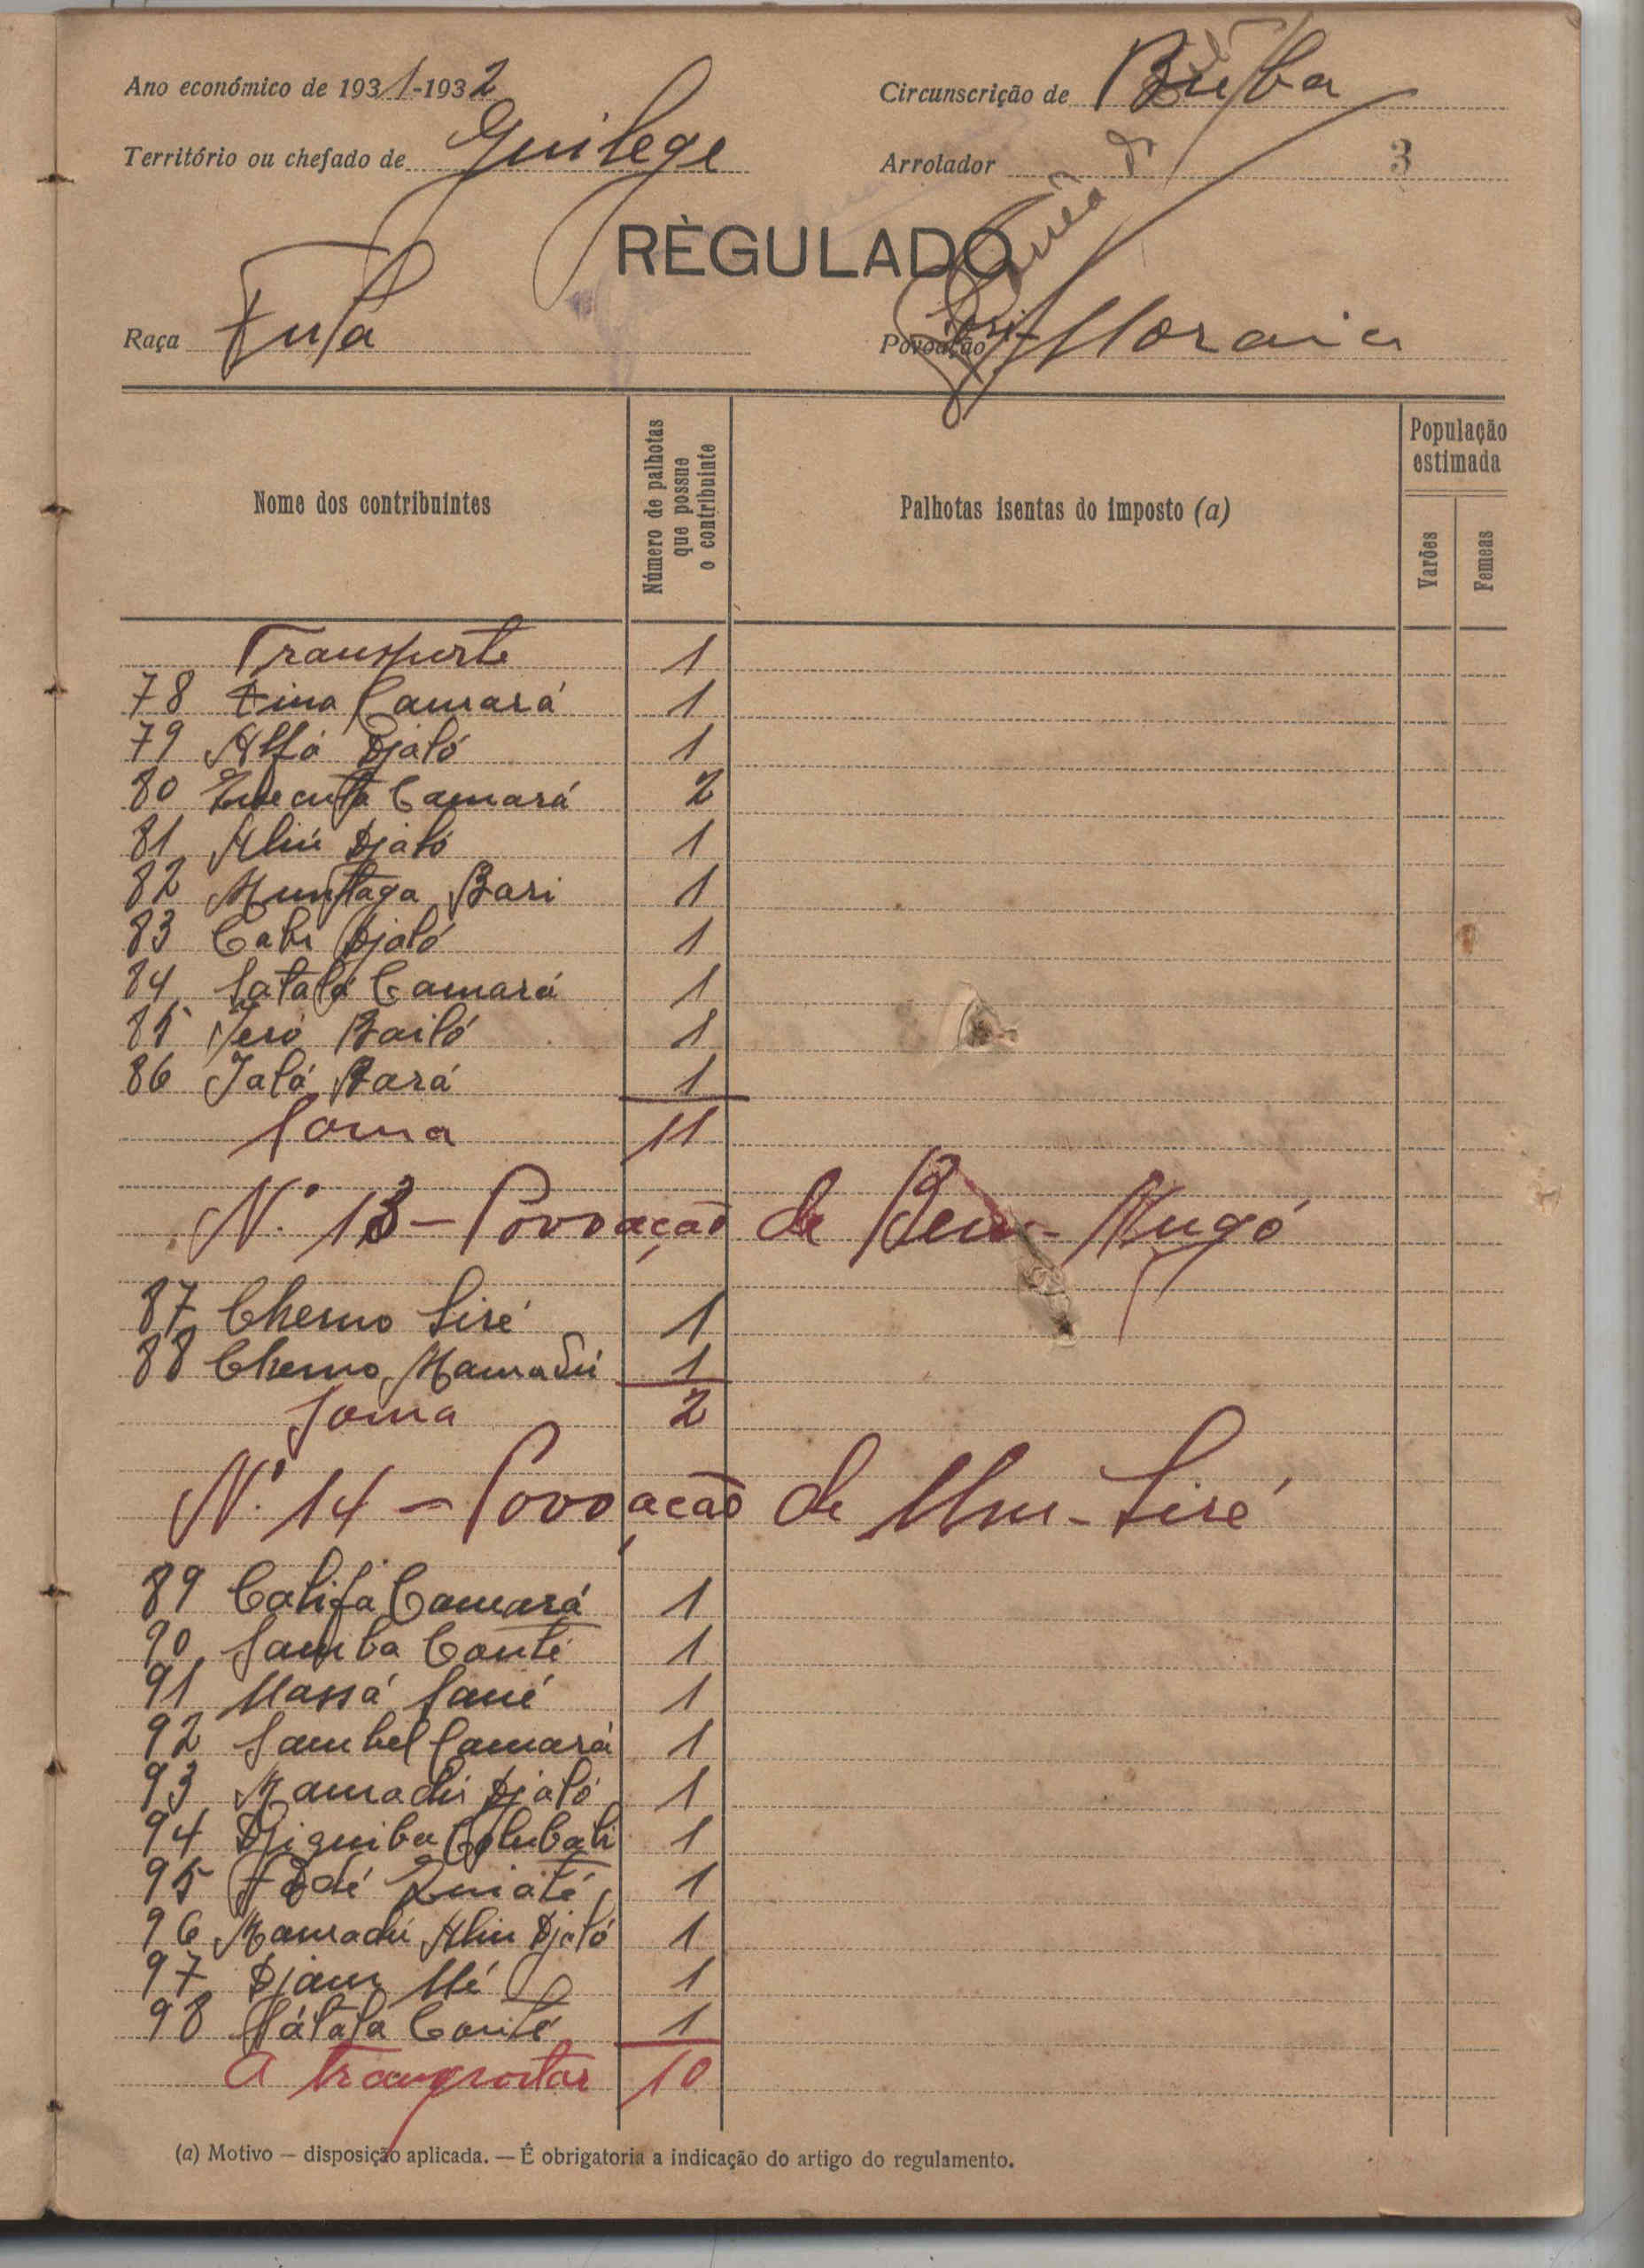 Ano económico de 1931-1932
Circunscrição de Buba
Território ou chefado de Guilege
Arrolador
3
RÈGULADO
Raça Fula
Povoação
Nome dos contribuintes
Número de palhotas que possue o contribuinte
Palhotas isentas do imposto (a)
População estimada
Varões
Femeas
Transporte 1
78 Camará 1
79 Alfá Djaló 1
80 Camará 2
81 Aliú Djaló 1
82 Muntaga Bari 1
83 Djaló 1
84 Satalá Camará 1
85 Bailó 1
86 1
Soma 11
N.º 13 - Povoação de
87 Cherno Siré 1
88 Cherno Mamadú 1
Soma 2
N.º 14 - Povoação de Siré
89 Califa Camará 1
90 Samba Conté 1
91 Massá Sané 1
92 Sambel Camará 1
93 Mamadú Djaló 1
94 Djiguiba Colubali 1
95 Quiaté 1
96 Mamadú Aliu Djaló 1
97 Djam 1
98 Conté 1
A transportar 10
(a) Motivo — disposição aplicada. — É obrigatoria a indicação do artigo do regulamento.